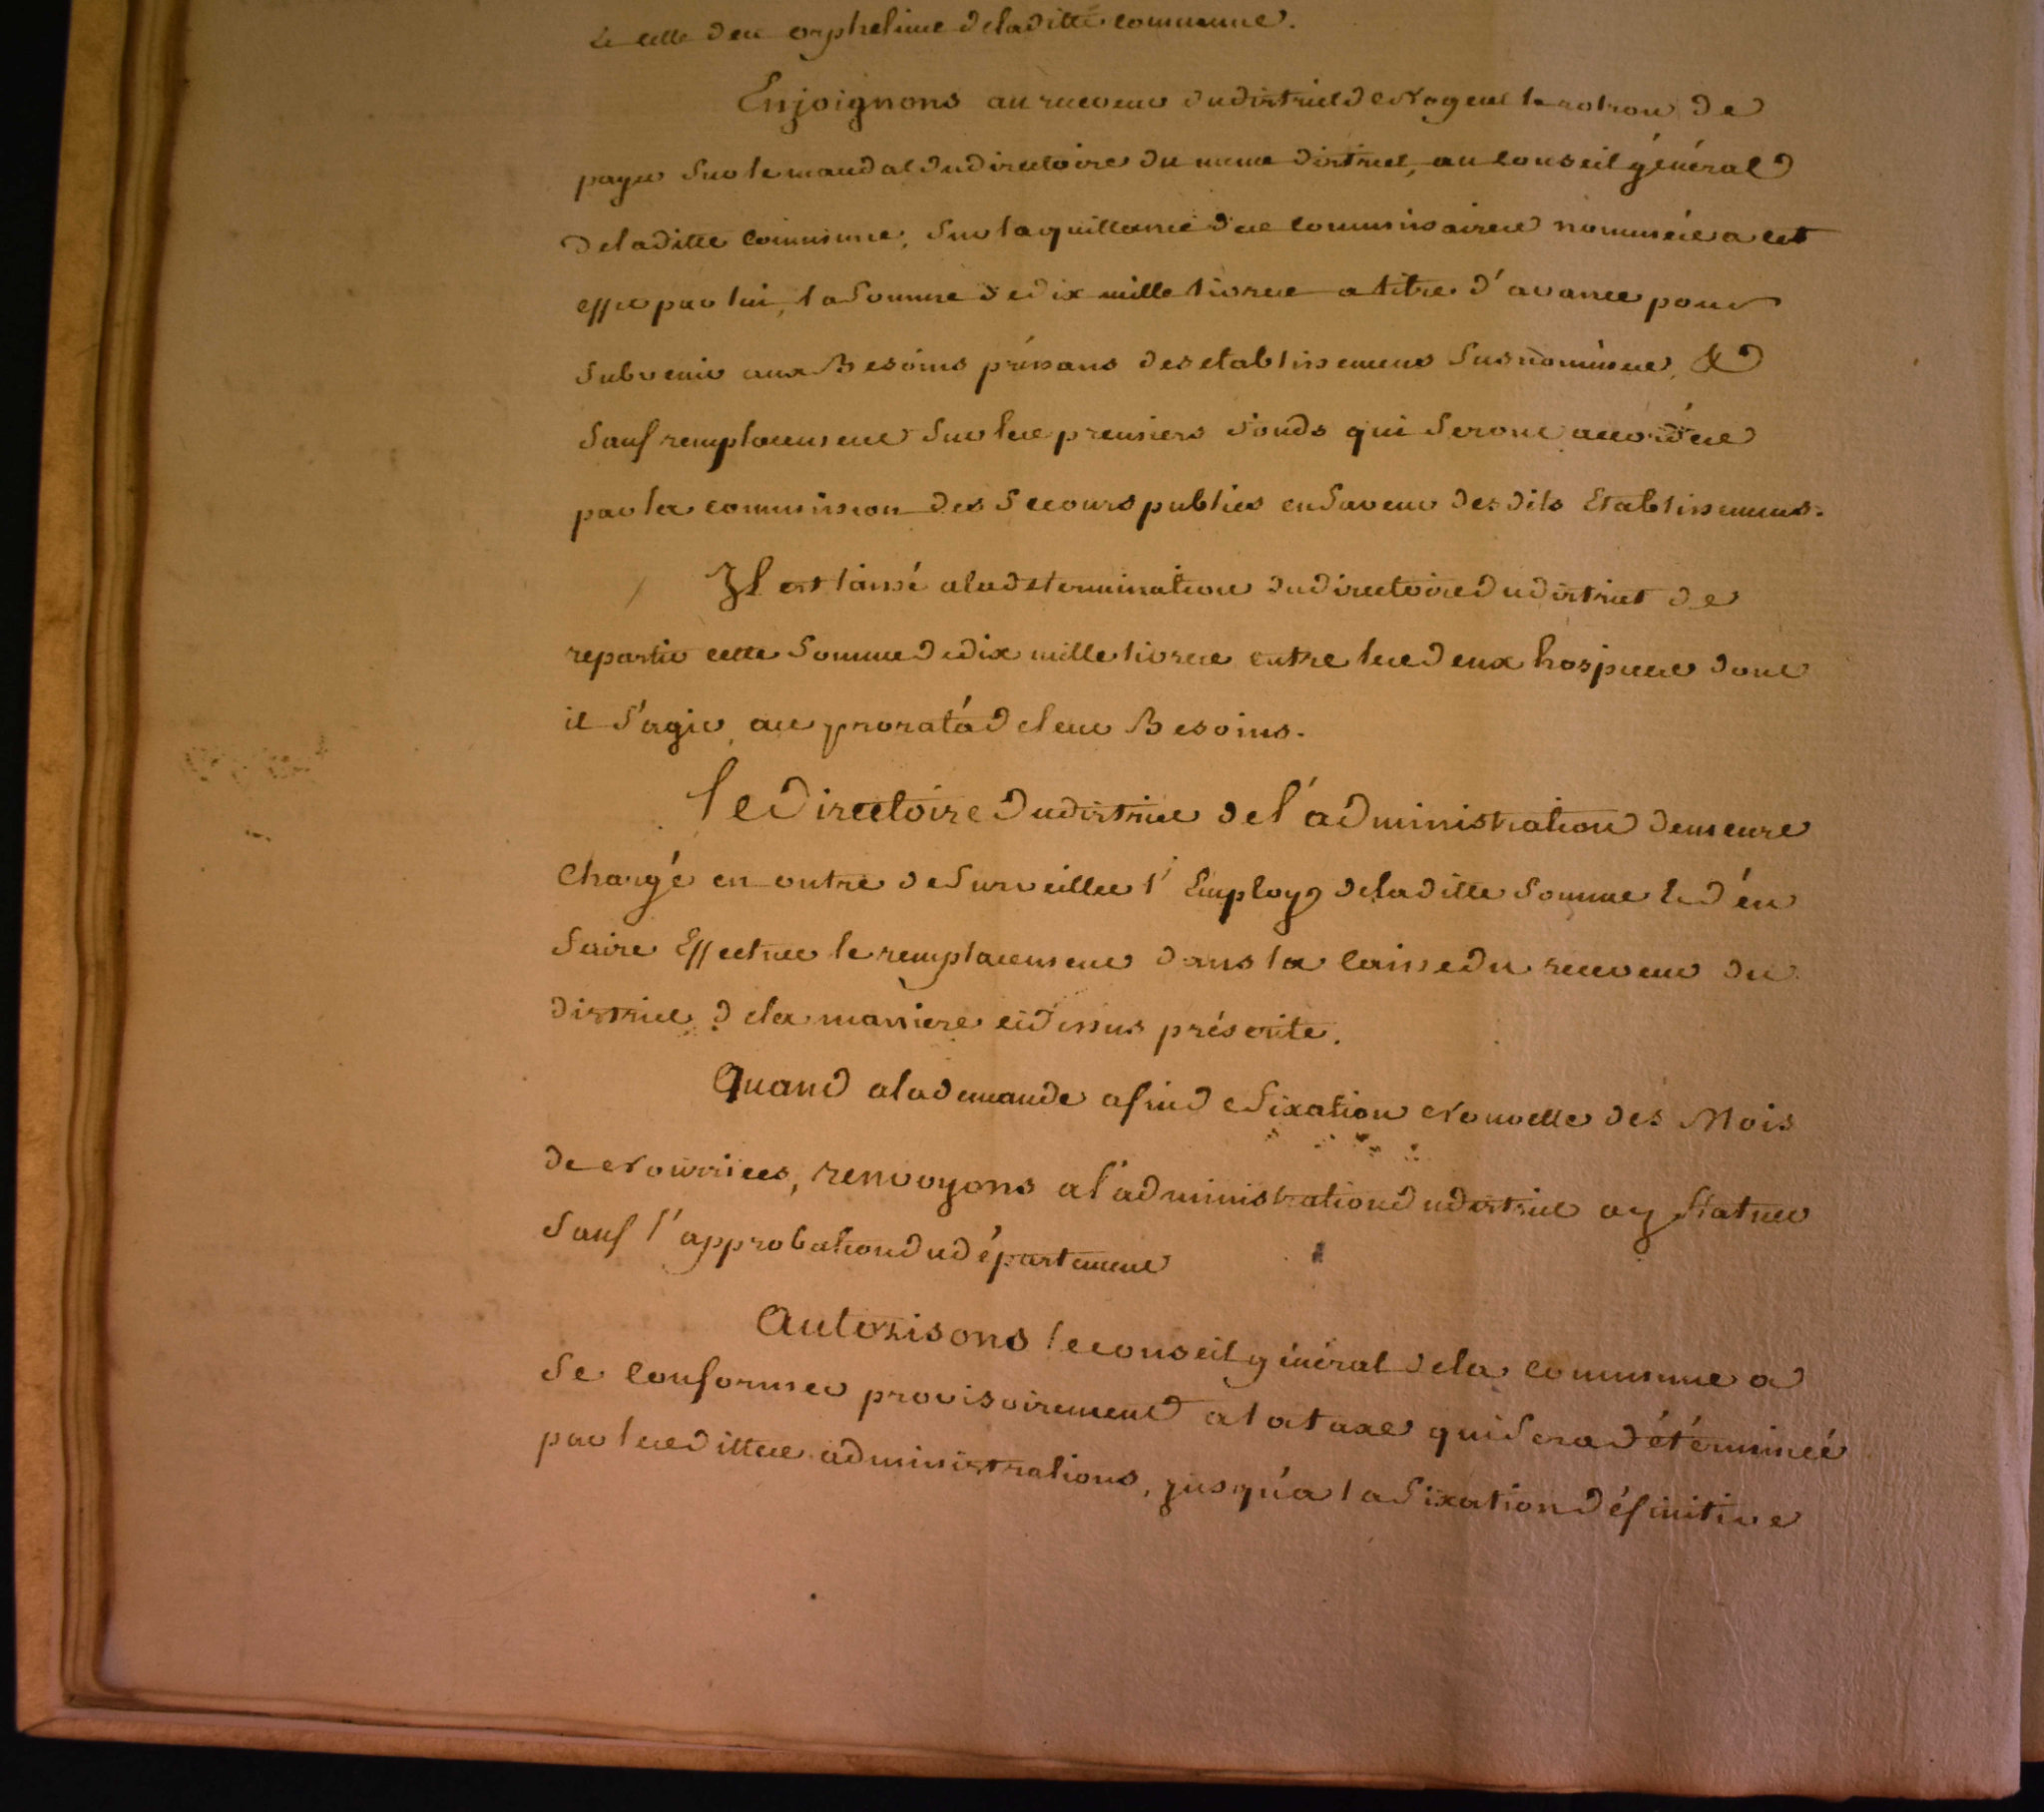 et celle des orphelines de laditte commune.
Enjoignons au receveur du district de Nogent le rotrou de
payer sur le mandat du directoire du meme district, au conseil général
de laditte commune, sur la quittance des commissaires nommées a cet
effet par lui, la somme de dix mille livres a titre d'avance pour
subvenir aux Besoins préssans des etablissemens susnommées, &
sauf remplacement sur les premiers fonds qui seront accordées
par la commission des secours publics en faveur des dits Etablissemens.
Il est laissé a la determination du directoire du district de
repartir cette somme de dix mille livres entre les deux hospices dont
il s'agit, au prorata de leur Besoins.
le Directoire du district de l'administration demeure
Chargé en outre de surveiller l'Employ de laditte somme et d'en
faire Effectuer le remplacement dans la caisse du receveur du
district de la maniere cidessus préscrite.
Quand a la demande afin de fixation Nouvelle des Mois
de Nourrices, renvoyons a l'administration du district a y statuer
sauf l'approbation du département
Autorisons le conseil général de la commune a
se conformer provisoirement a la taxe qui sera détérminéé
par les dittes administrations, jusqu'a la fixation définitive